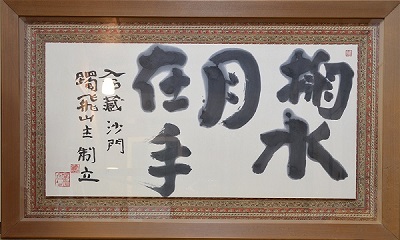 掬水
月
在手
入蔵沙門
獨飛山主制立